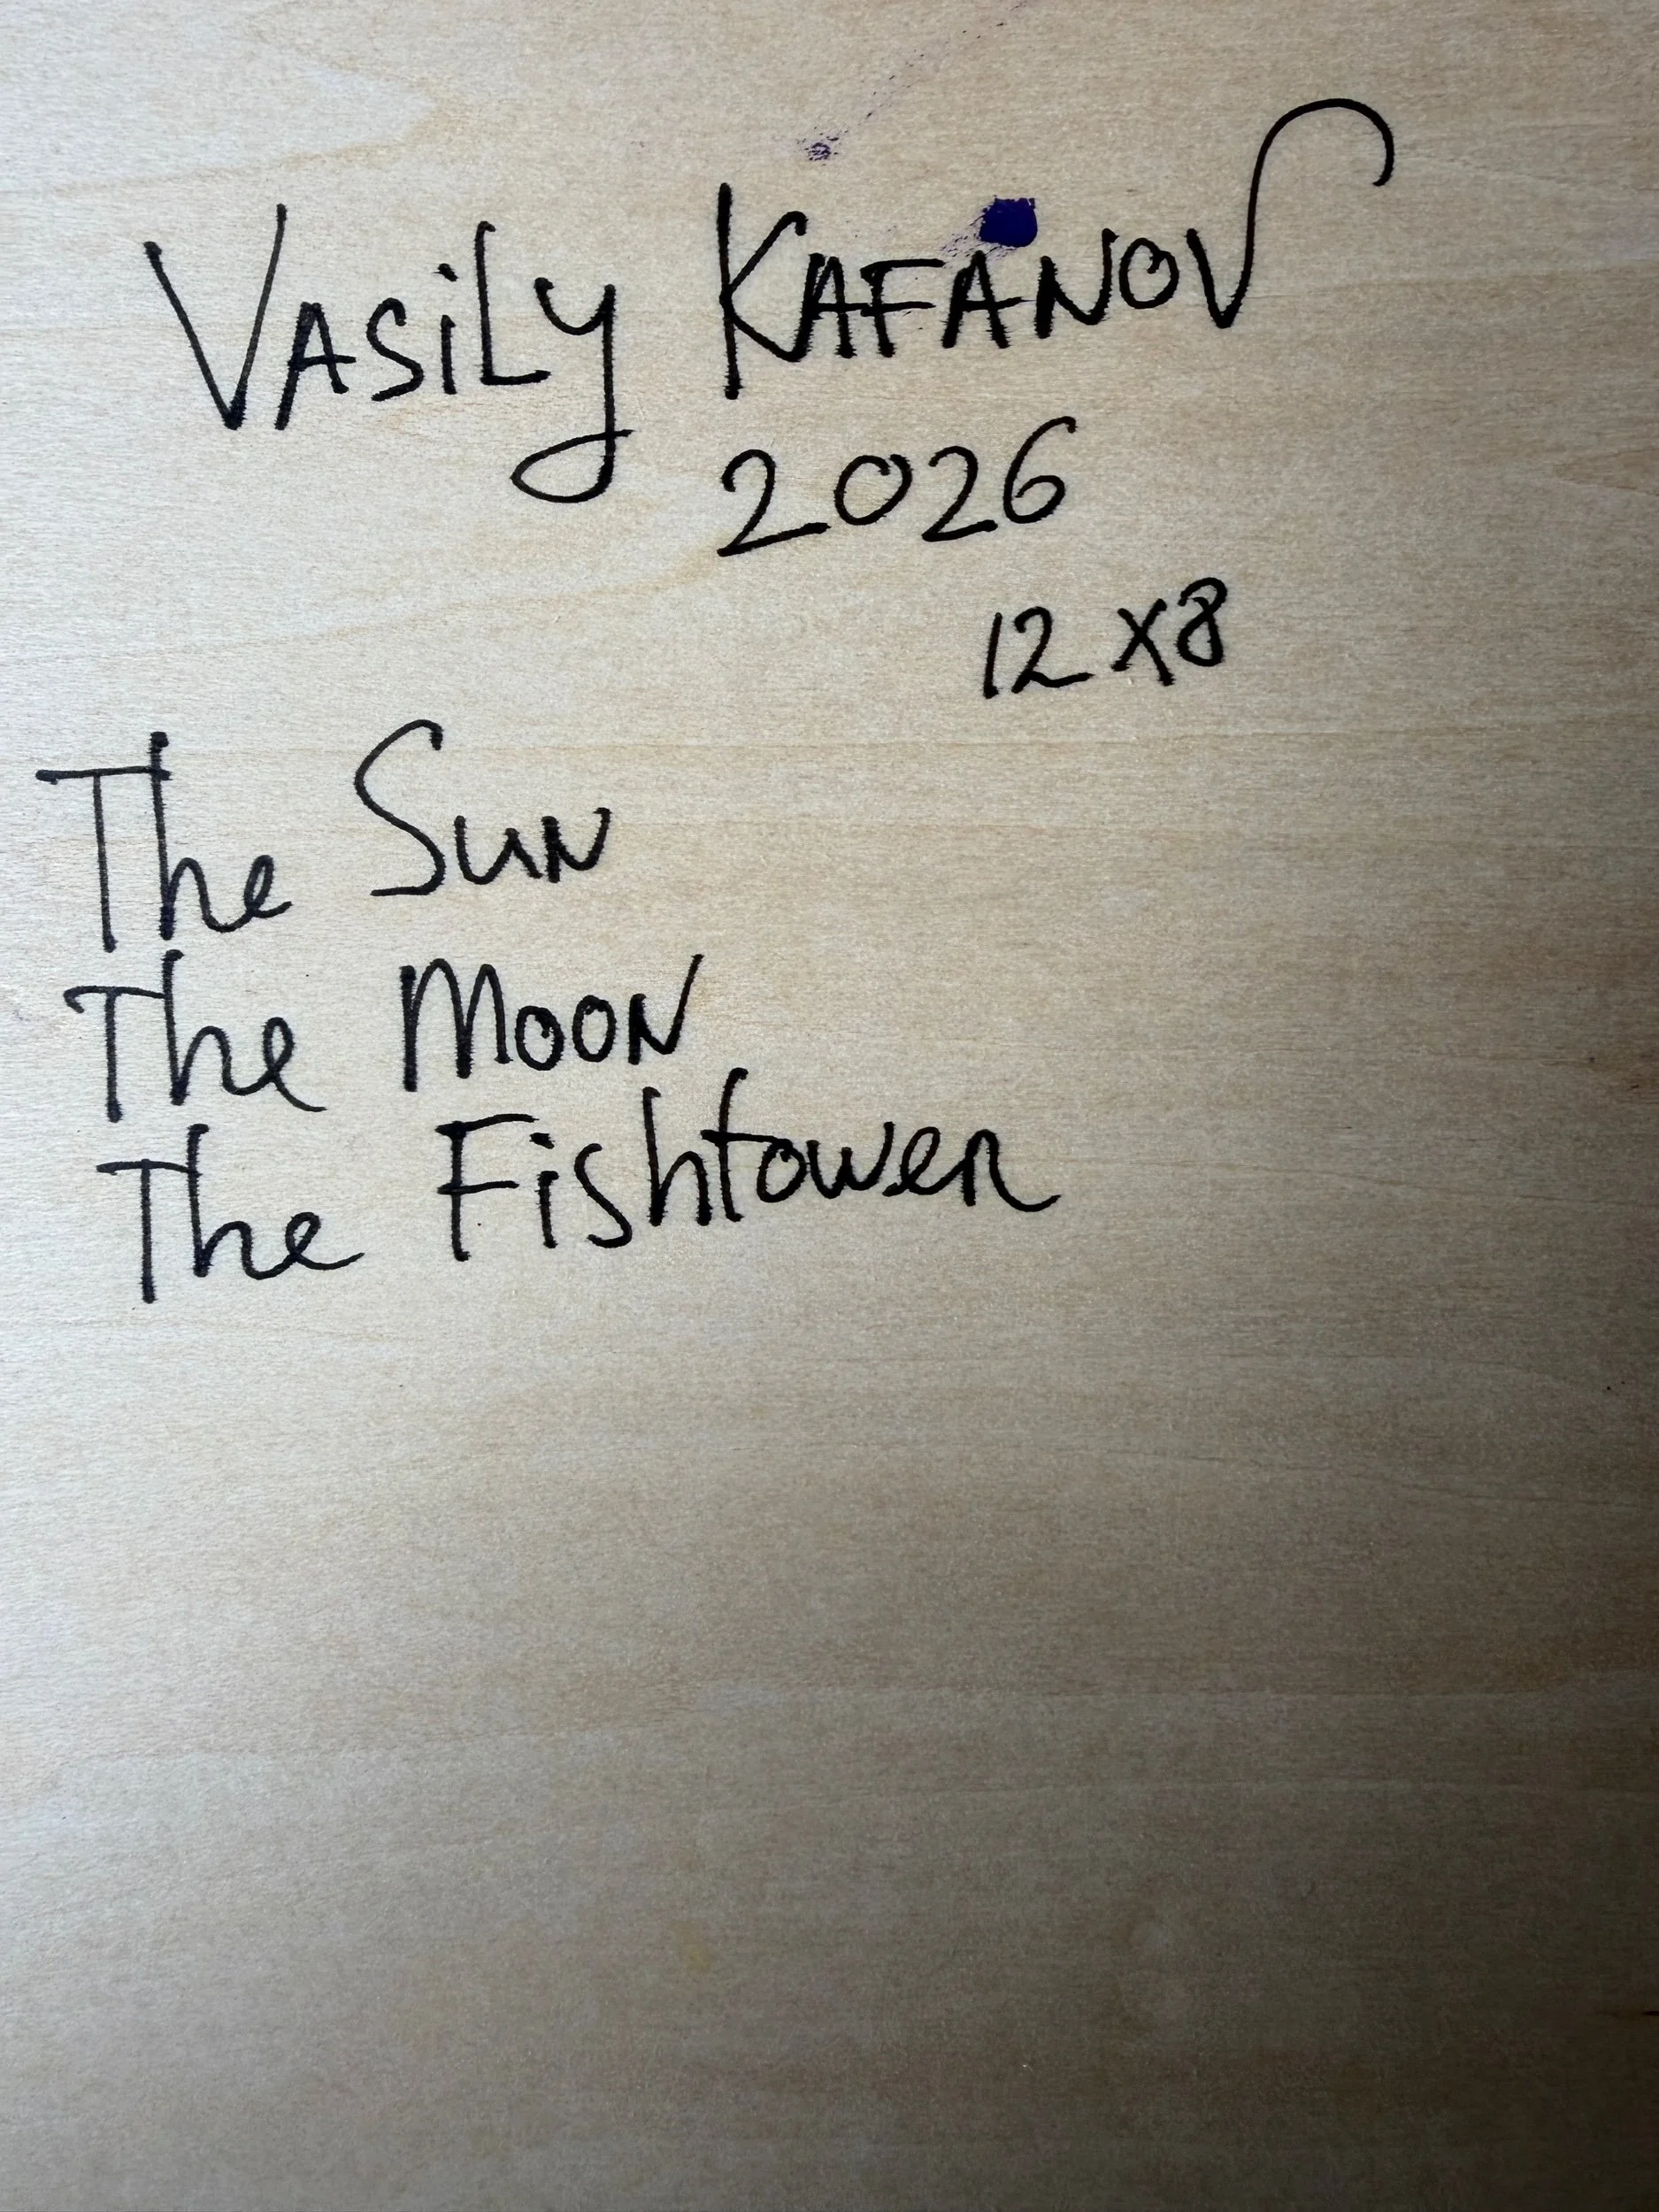 Vasily Kafanov
2026
12 x 8
The Sun
The Moon
The Fishtower